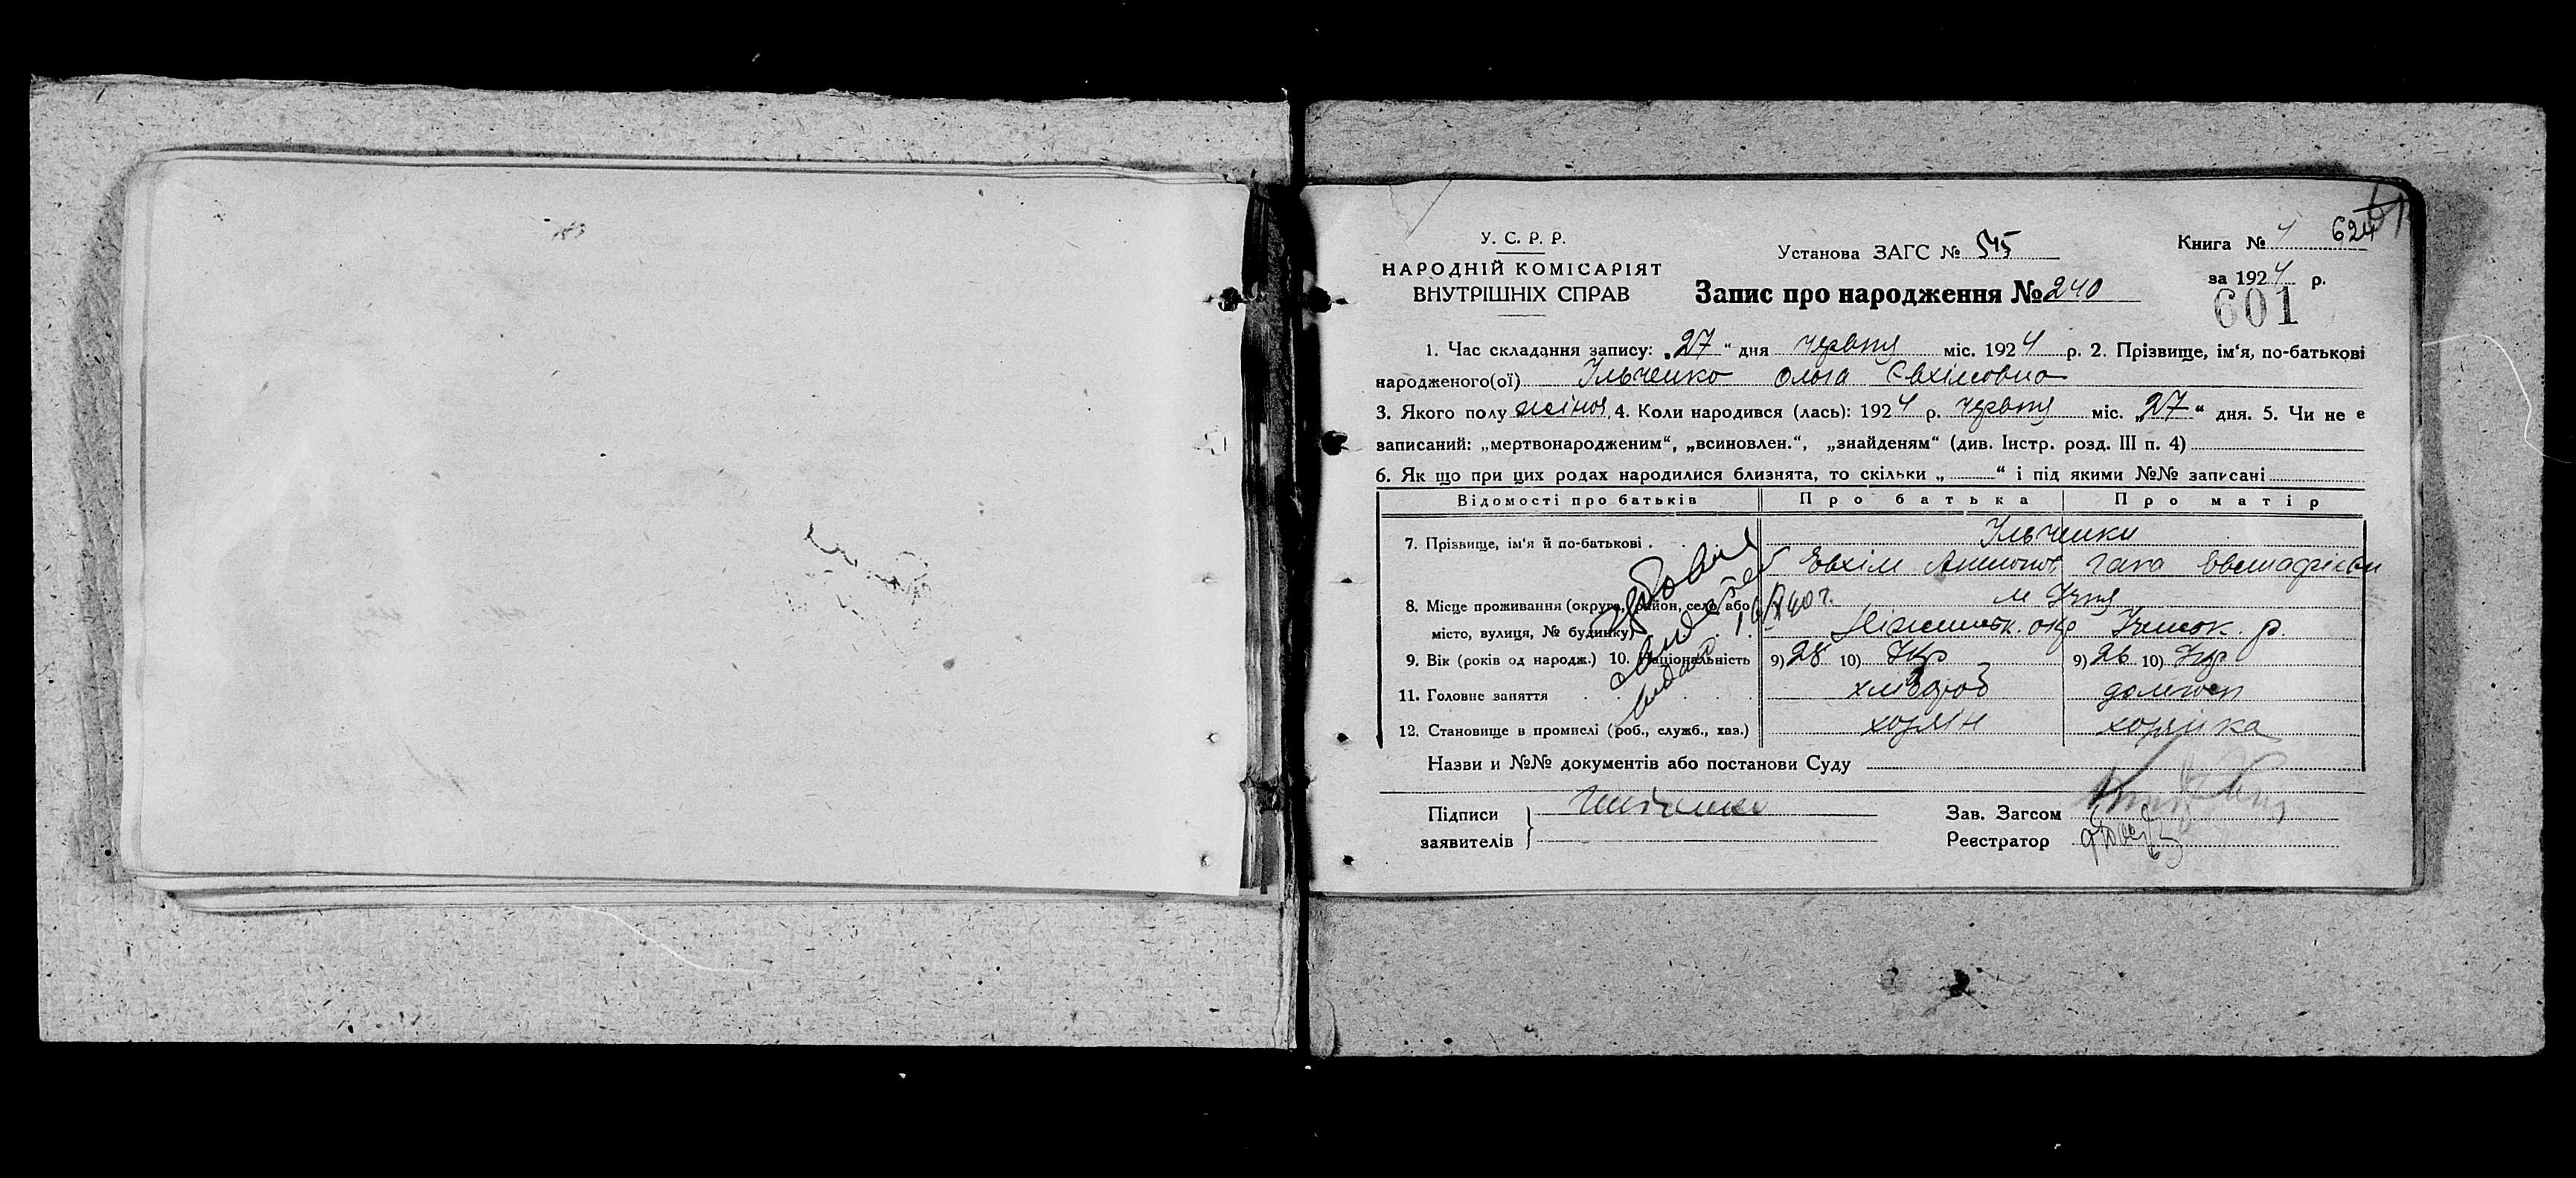 У. С. Р. Р.
НАРОДНІЙ КОМІСАРІЯТ
ВНУТРІШНІХ СПРАВ
Установа ЗАГС № 545
Запис про народження № 240
Книга № 4 624
за 1924 р.
601
1. Час складання запису: „27“ дня червня міс. 1924 р. 2. Прізвище, ім‘я, по-батькові
народженого(ої) Ільченко Ольга Євхімовна
3. Якого полу жіноч. 4. Коли народився (лась): 1924 р. червня міс. „27“ дня. 5. Чи не є
записаний: „мертвонародженим“, „всиновлен.“, „знайденям“ (див. Інстр. розд. III п. 4)
6. Як що при цих родах народилися близнята, то скільки „ “ і під якими №№ записані
Відомості про батьків Про батька Про матір
7. Прізвище, ім‘я й по-батькові . Ільченки
Евхім Антонов Гана
8. Місце проживання (округа, район, село або м Ічня
місто, вулиця, № будинку) Ніжинськ. окр Іченск. р.
9. Вік (років од народж.) 10. Національність 9) 28 10) Укр 9) 26 10) Укр
11. Головне заняття хлібороб
12. Становище в промислі (роб., служб., хаз.) хозяїн хозяйка
Назви и №№ документів або постанови Суду
Підписи Ільченко
заявителів
Зав. Загсом
Реєстратор